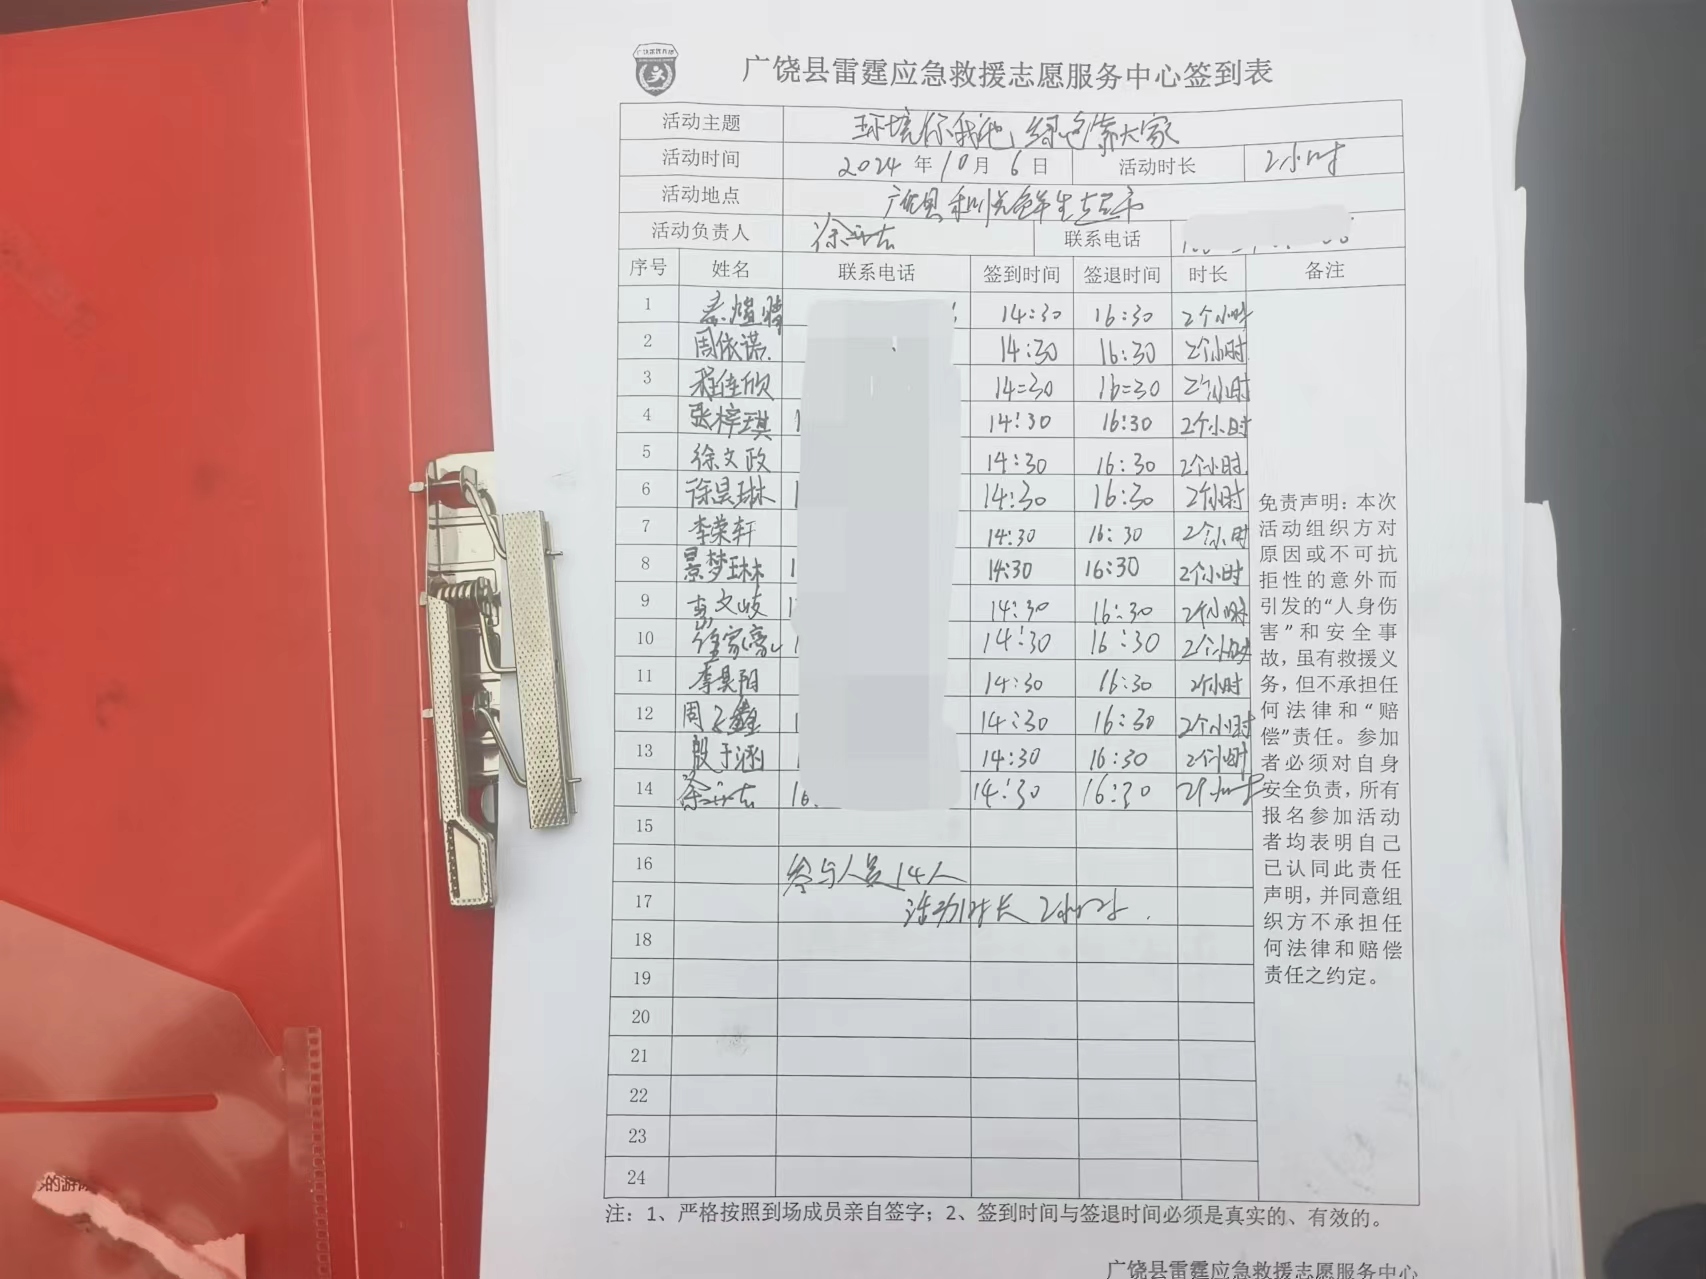 广饶县雷霆应急救援志愿服务中心签到表
活动主题 环境你我他,绿色系大家
活动时间 2024年10月6日 活动时长 2小时
活动地点 广饶县利悦鲜生超市
活动负责人 联系电话
序号 姓名 联系电话 签到时间 签退时间 时长 备注
1 14:30 16:30 2个小时
2 周依诺 14:30 16:30 2个小时
3 程佳欣 14:30 16:30 2个小时
4 张梓琪 14:30 16:30 2个小时
5 徐文政 14:30 16:30 2个小时
6 徐昊琳 14:30 16:30 2个小时
7 李荣轩 14:30 16:30 2个小时
8 景梦琳 14:30 16:30 2个小时
9 文岐 14:30 16:30 2个小时
10 徐家亮 14:30 16:30 2个小时
11 李昊阳 14:30 16:30 2个小时
12 周子鑫 14:30 16:30 2个小时
13 殷于涵 14:30 16:30 2个小时
14 16. 14:30 16:30 2个小时
15
16 参与人员14人
17 活动时长 2小时.
18
19
20
21
22
23
24
免责声明：本次
活动组织方对
原因或不可抗
拒性的意外而
引发的“人身伤
害”和安全事
故，虽有救援义
务，但不承担任
何法律和“赔
偿”责任。参加
者必须对自身
安全负责，所有
报名参加活动
者均表明自己
已认同此责任
声明，并同意组
织方不承担任
何法律和赔偿
责任之约定。
注：1、严格按照到场成员亲自签字；2、签到时间与签退时间必须是真实的、有效的。
广饶县雷霆应急救援志愿服务中心
的游